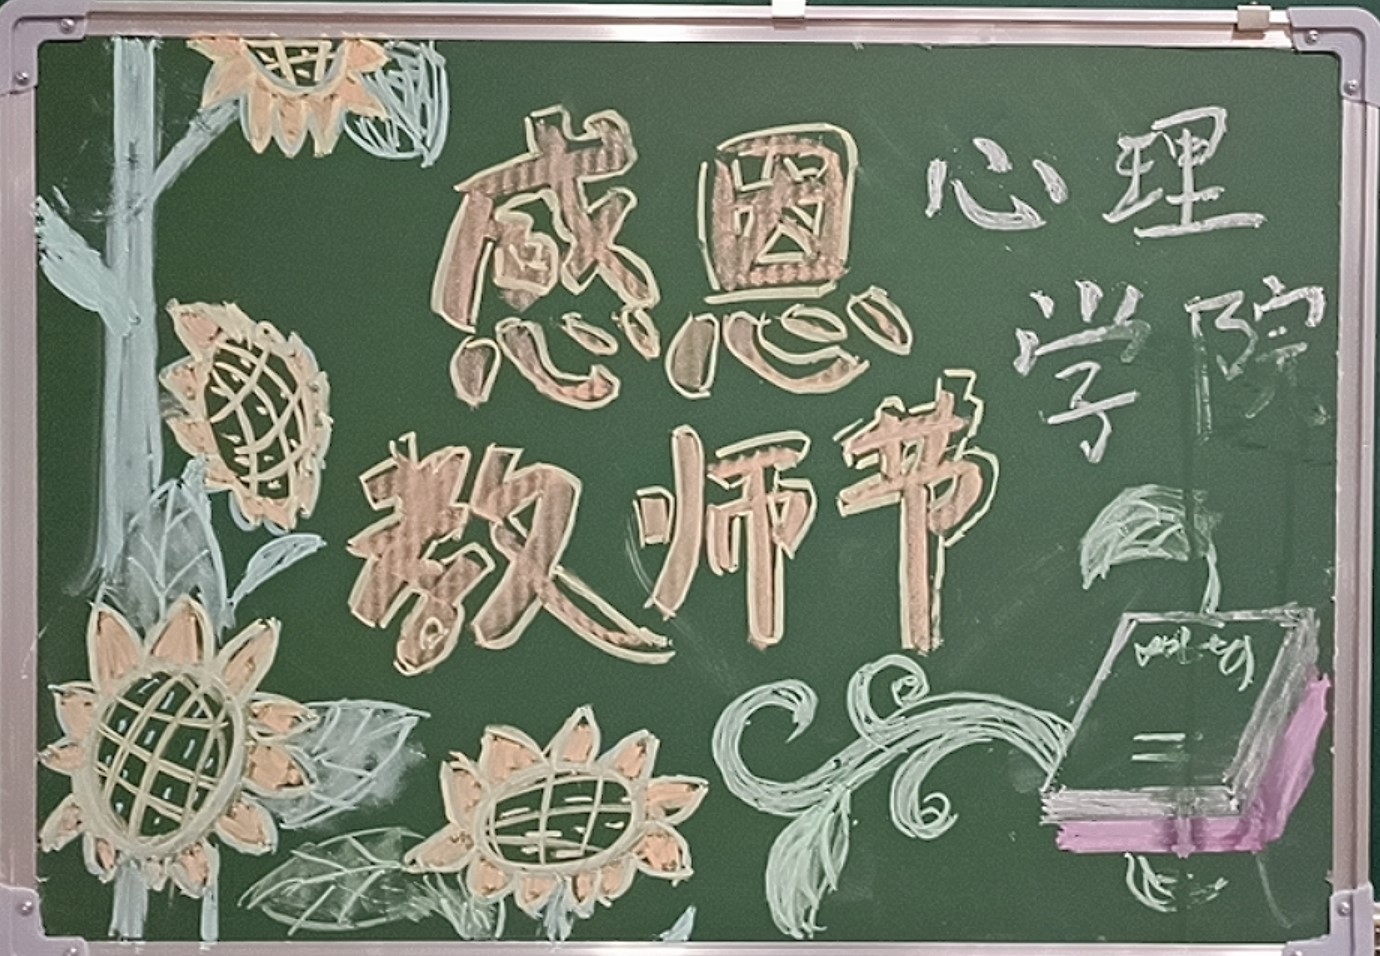 感恩
教师节
心理
学院